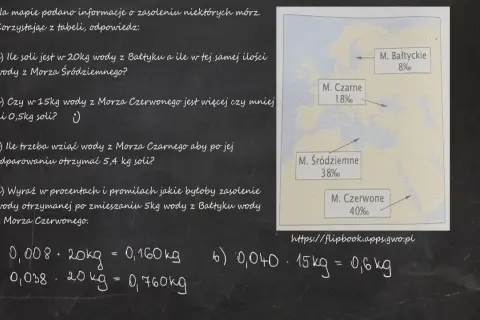 Na mapie podano informacje o zasoleniu niektórych mórz.
Korzystając z tabeli, odpowiedz:
) Ile soli jest w 20kg wody z Bałtyku a ile w tej samej ilości
wody z Morza Śródziemnego?
) Czy w 15kg wody z Morza Czerwonego jest więcej czy mniej
ż 0,5kg soli?
) Ile trzeba wziąć wody z Morza Czarnego aby po jej
odparowaniu otrzymał 5,4 kg soli?
) Wyraź w procentach i promilach jakie byłoby zasolenie
wody otrzymanej po zmieszaniu 5kg wody z Bałtyku wody
z Morza Czerwonego.
M. Bałtyckie
8‰
M. Czarne
18‰
M. Śródziemne
38‰
M. Czerwone
40‰
https://flipbook.apps.gwo.pl
0,008 · 20kg = 0,160kg
0,038 · 20 kg = 0,760kg
b) 0,040 · 15kg = 0,6kg